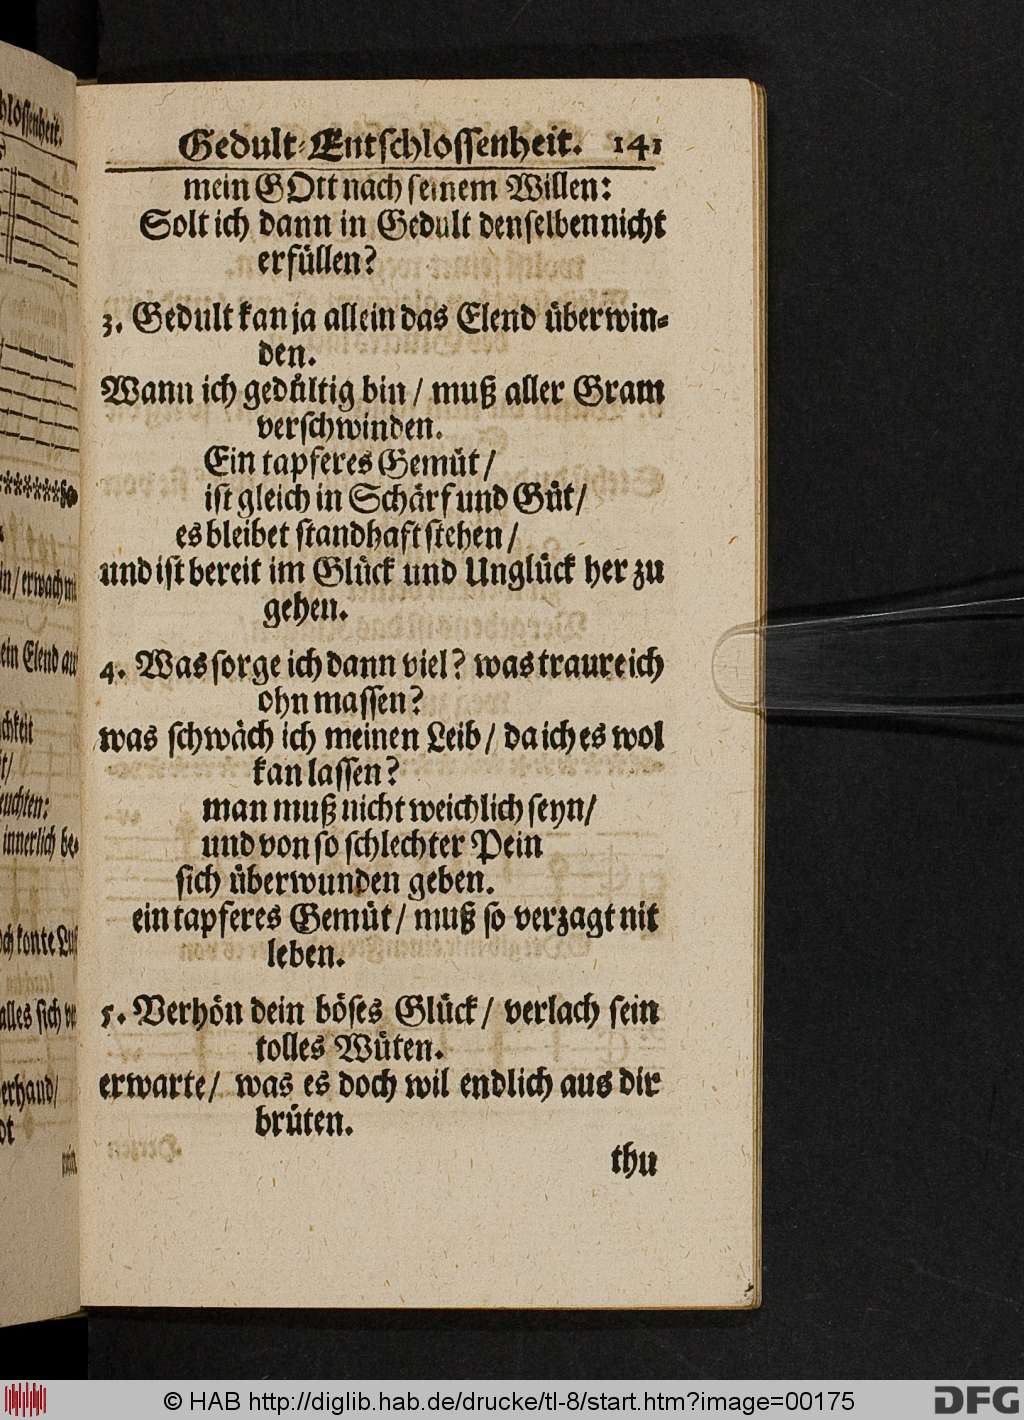 Gedult-Entschlossenheit. 141
mein GOtt nach seinem Willen:
Solt ich dann in Gedult denselben nicht
erfüllen?
3. Gedult kan ja allein das Elend überwin-
den.
Wann ich gedültig bin / muß aller Gram
verschwinden.
Ein tapferes Gemüt /
ist gleich in Schärf und Güt /
es bleibet standhaft stehen /
und ist bereit im Glück und Unglück her zu
gehen.
4. Was sorge ich dann viel? was traure ich
ohn massen?
was schwäch ich meinen Leib / da ich es wol
kan lassen?
man muß nicht weichlich seyn /
und von so schlechter Pein
sich überwunden geben.
ein tapferes Gemüt / muß so verzagt nit
leben.
5. Verhön dein böses Glück / verlach sein
tolles Wüten.
erwarte / was es doch wil endlich aus dir
brüten.
thu
© HAB http://diglib.hab.de/drucke/tl-8/start.htm?image=00175
DFG